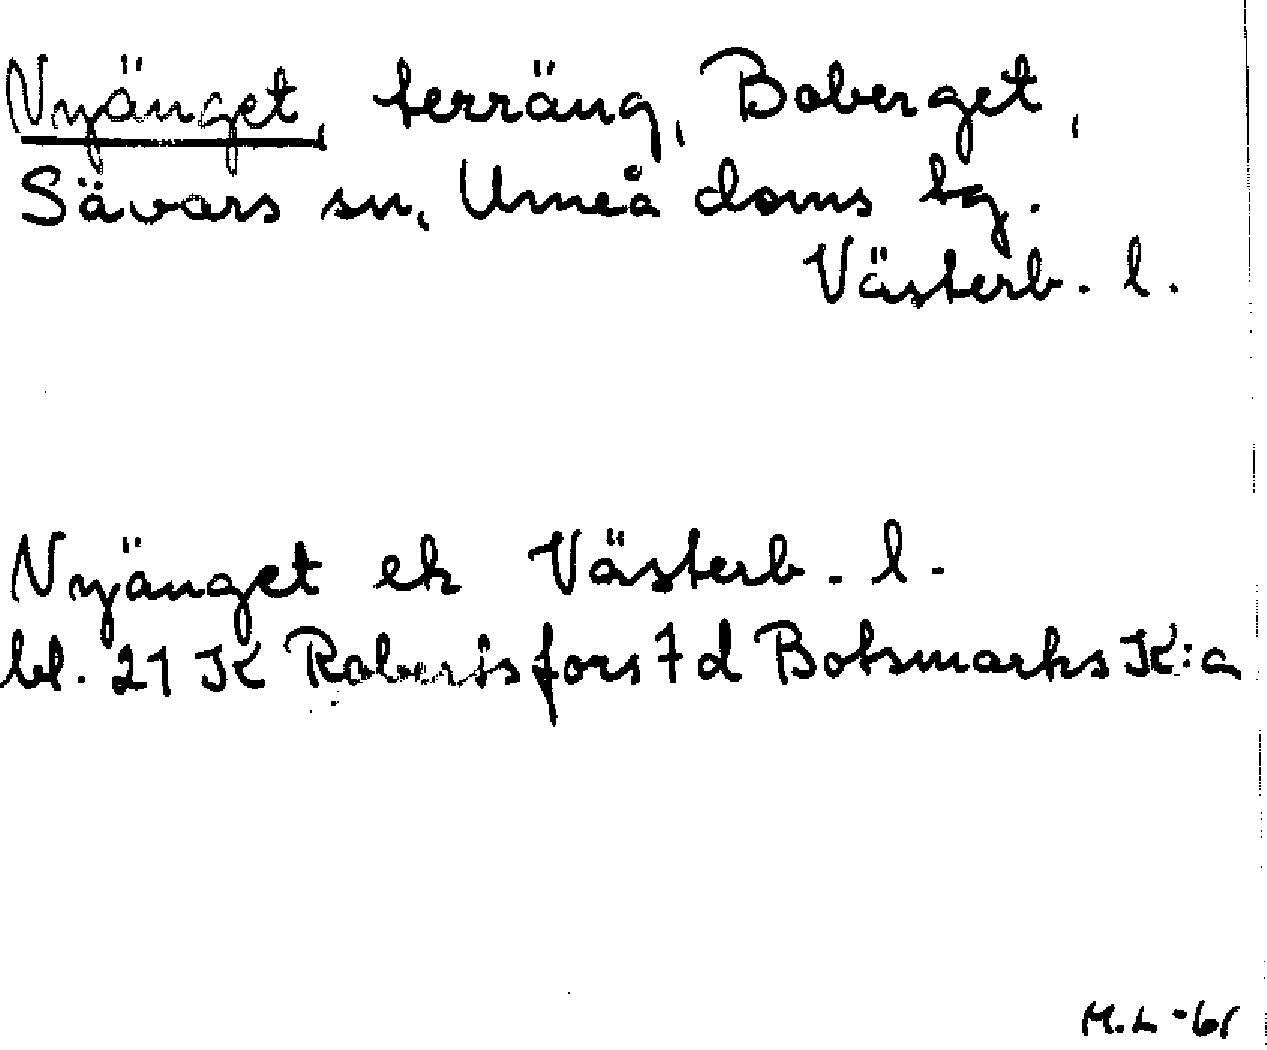 Nyänget, terräng, Boberget,
Sävars sn, Umeå doms bg.
Västerb. l.
Nyänget ek Västerb. l.
bl. 21 K Robertsfors 7 d Botsmarks K:a
M.L -61